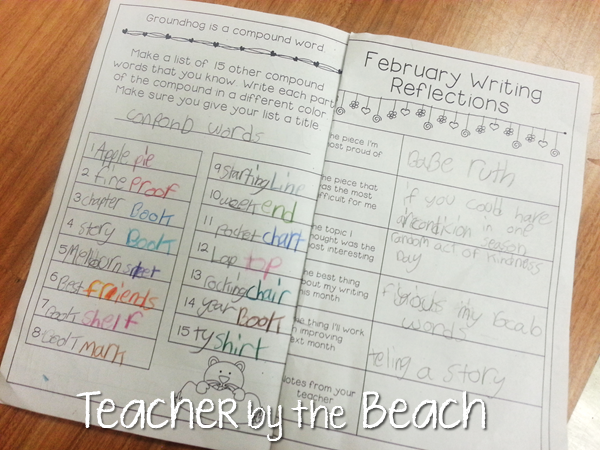 Groundhog is a compound word
Make a list of 15 other compound
words that you know. Write each part
of the compound in a different color.
Make sure you give your list a title.
conponD words
1 Apple pie
2 fire proof
3 chapter Book
4 story Book
5
6 Best friends
7 Book shelf
8 BooKT mark
9 Starting Line
10 week end
11 Pocket chart
12 Lap top
13 rocking chair
14 year Book
15 ty shirt
February Writing
Reflections
he piece I'm
ost proud of
BaBe ruth
he piece that
as the most
fficult for me
if you could have
in one
season
he topic I
hought was the
ost interesting
random act of kindness
Day
he best thing
bout my writing
his month
my
words
he thing I'll work
n improving
ext month
teling a story
Notes from your
teacher
Teacher by the Beach